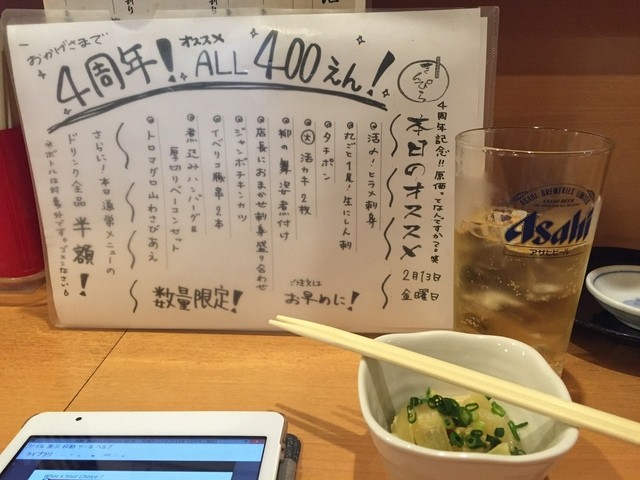 おかげさまで
4周年!
オススメ
ALL 400えん!
4周年記念!!原価?てなんですか?笑
本日のオススメ
2月13日
金曜日
活〆!ヒラメ刺身
丸ごと1尾!生にしん刺
タチポン
大 活カキ2枚
柳の舞姿煮付け
店長におまかせ刺身盛り合わせ
ジャンボチキンカツ
イベリコ豚串2本
煮込みハンバーグ&
厚切りベーコンセット
トロマグロ山わさびあえ
ご注文は
お早めに!
数量限定!
さらに!本日通常メニューの
ドリンク全品 半額!
※ボトルは対象外です。ゴメンなさい
ASAHI BREWERIES LIMITED
Asahi
アサヒビール
ファイル 表示 移動 ツール ヘルプ
ライブラリ
What's Your Choice?